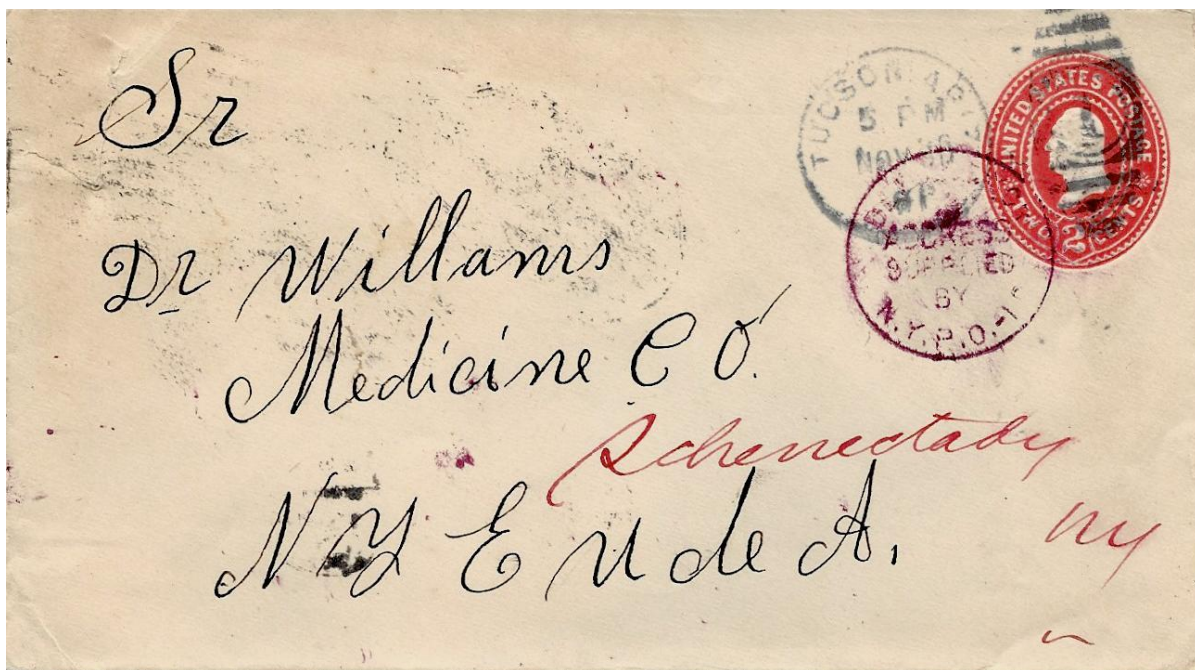 Sr
Dr Willams
Medicine Co.
Schenectady
N Y E U de A.
ny
TUCSON ARI
5 PM
NOV 30
UNITED STATES POSTAGE
TWO 2 CENTS
ADDRESS
SUPPLIED
BY
N.Y.P.O.